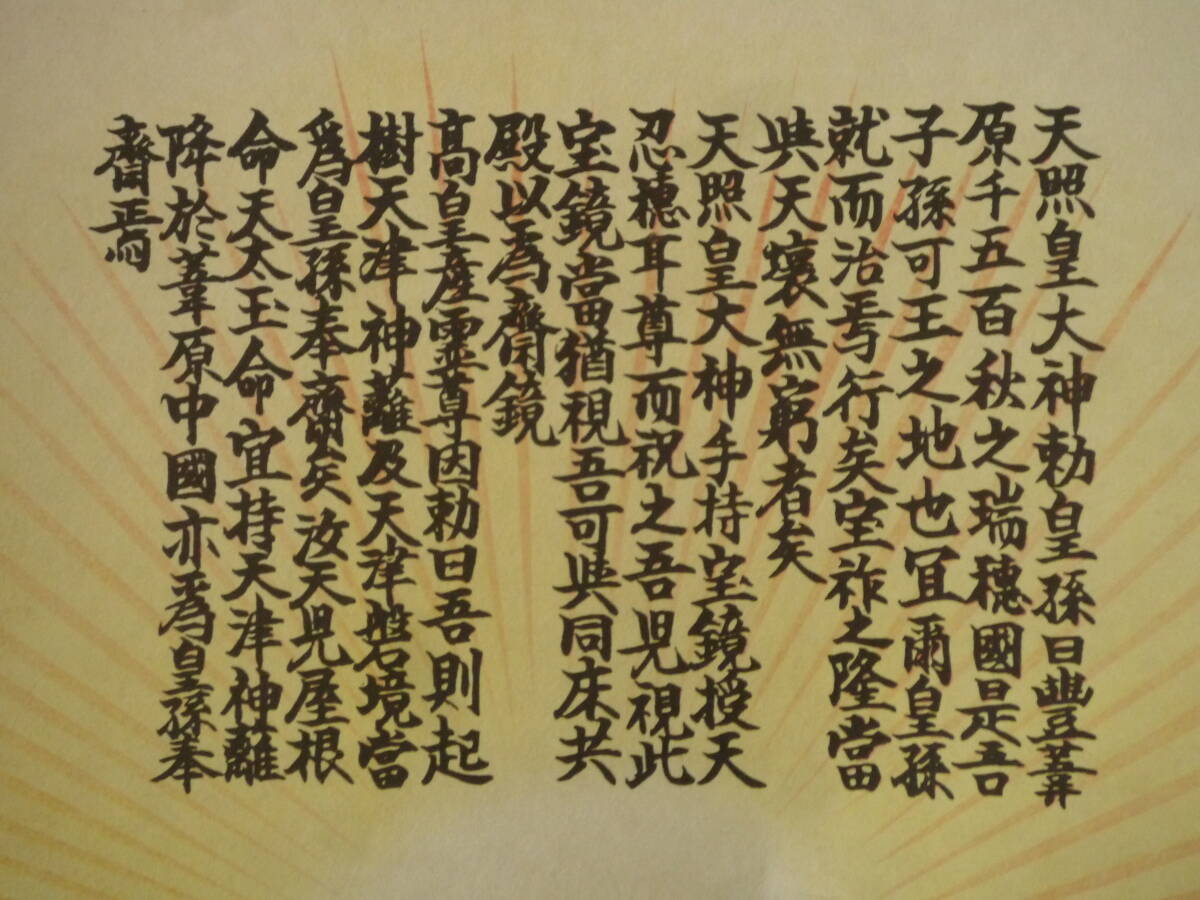 天照皇大神勅皇孫曰豊葦
原千五百秋之瑞穂國是吾
子孫可王之地也宜爾皇孫
就而治焉行矣宝祚之隆當
與天壌無窮者矣
天照皇大神手持宝鏡授天
忍穂耳尊而祝之吾児視此
宝鏡當猶視吾可與同床共
殿以為齋鏡
高皇産霊尊因勅曰吾則起
樹天津神蘺及天津磐境當
為皇孫奉齋矣汝天児屋根
命天太玉命宜持天津神蘺
降於葦原中國亦為皇孫奉
齋焉